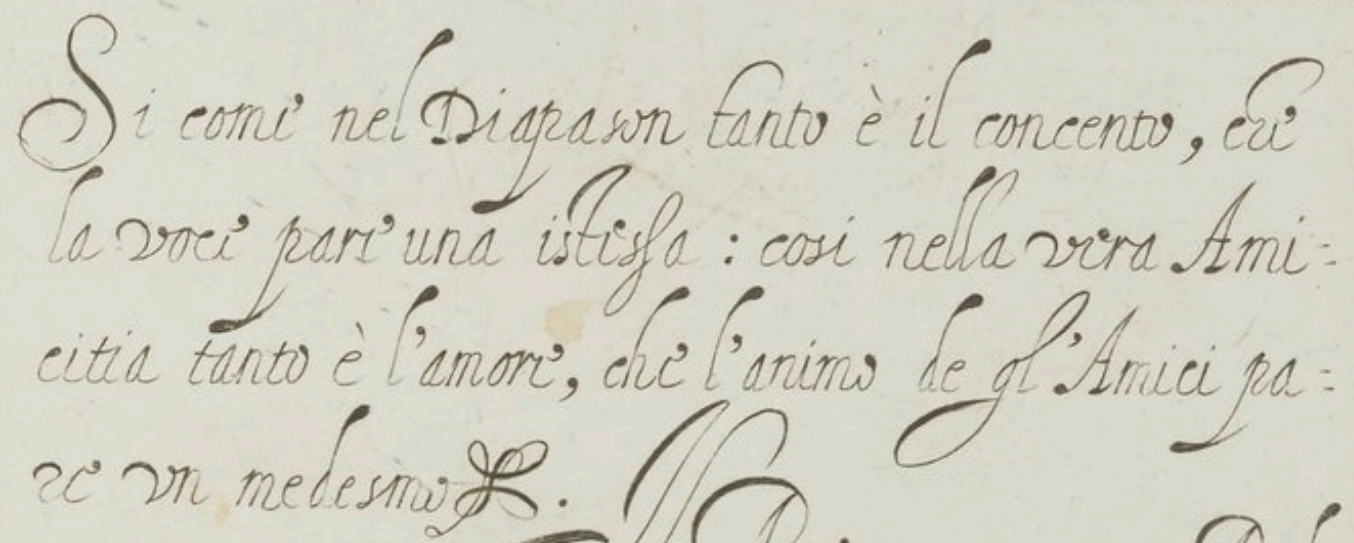 Si come nel Diapason tanto è il concento, che
la voce pare una istessa : così nella vera Ami=
citia tanto è l'amore, che l'animo de gl'Amici pa=
re vn medesmo.